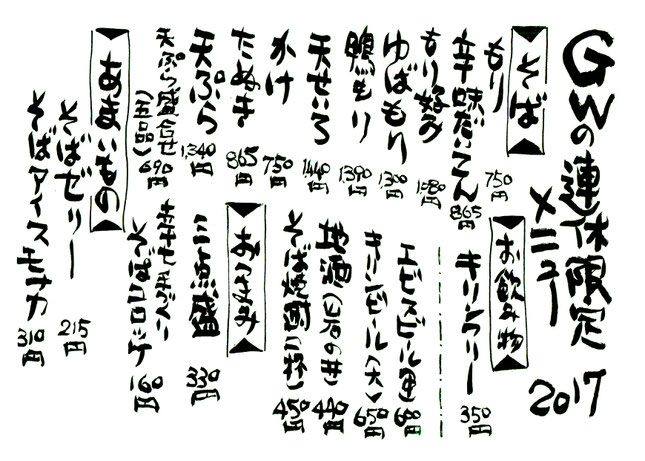 GWの連休限定
メニュー
2017
そば
もり 750円
辛味だいこん 865円
もり好み 1,080円
ゆばもり 1,300円
鴨もり 1,390円
天せいろ 1,440円
かけ 750円
たぬき 865円
天ぷら 1,340円
天ぷら盛合せ(五品) 690円
お飲み物
キリンフリー 350円
エビスビール(中) 600円
キリンビール(大) 650円
地酒(岩の井) 440円
そば焼酎(一杯) 450円
おつまみ
三点盛 330円
そばコロッケ 160円
あまいもの
そばゼリー 215円
そばアイスモナカ 310円